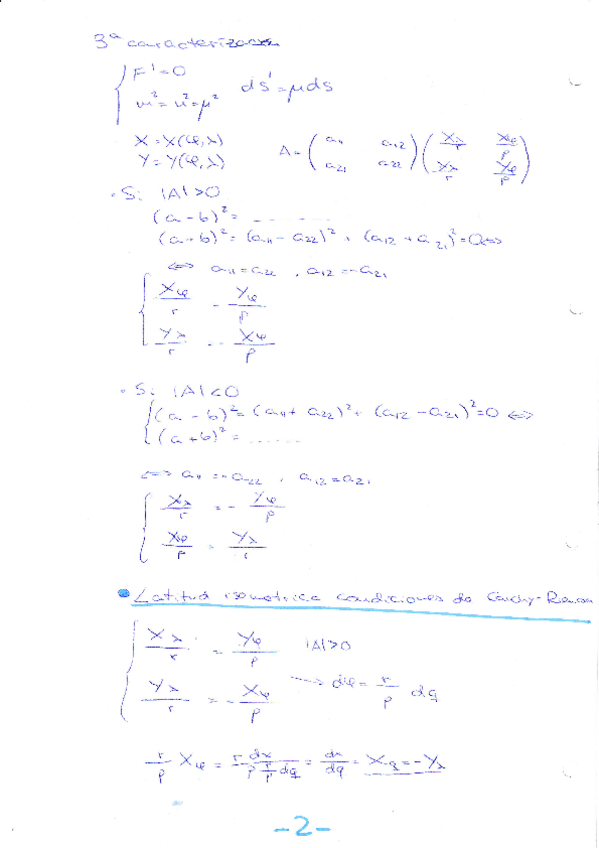 3ª caracterización
F' = 0
m² = n² = μ²
ds' = μds
X = X(φ,λ)
Y = Y(φ,λ)
A = ( a₁₁ a₁₂ a₂₁ a₂₂ ) ( Xλ/r Xφ/ρ Yλ/r Yφ/ρ )
· Si |A| > 0
(a - b)² = ... ...
(a + b)² = (a₁₁ - a₂₂)² + (a₁₂ + a₂₁)² = 0 ⇔
⇔ a₁₁ = a₂₂ , a₁₂ = -a₂₁
Xφ/r - Yφ/ρ
Yλ/r - - Xφ/ρ
· Si |A| < 0
(a - b)² = (a₁₁ + a₂₂)² + (a₁₂ - a₂₁)² = 0 ⇔
(a + b)² = ......
⇔ a₁₁ = -a₂₂ , a₁₂ = a₂₁
Xλ/r = - Yφ/ρ
Xφ/ρ = Yλ/r
Latitud isométrica condiciones de Cauchy-Rieman
Xλ/r = Yφ/ρ |A| > 0
Yλ/r = - Xφ/ρ → dφ = r/ρ dq
r/ρ Xφ = r/ρ dx/(r/ρ dq) = dx/dq = Xq = -Yλ
-2-